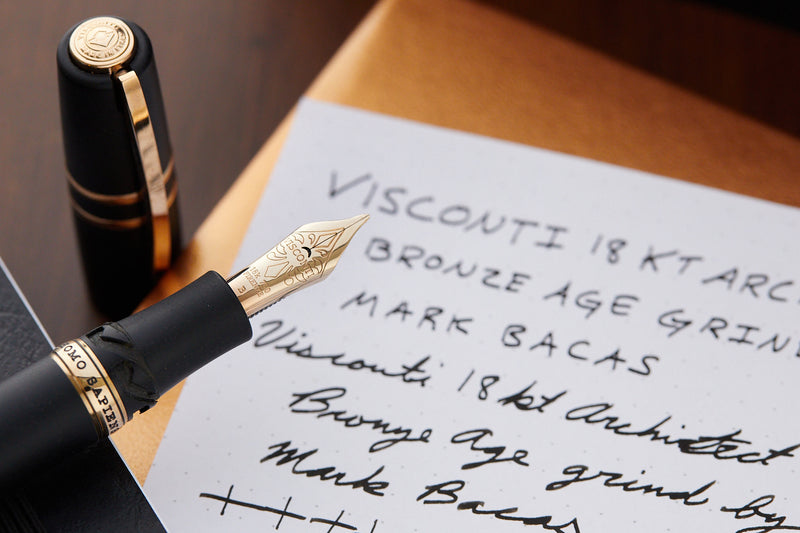 VISCONTI 18 KT ARC
BRONZE AGE GRIN
MARK BACAS
Visconti 18 kt Architect
Bronze Age grind by
Mark Bacas
VISCONTI
OMO SAPIENS